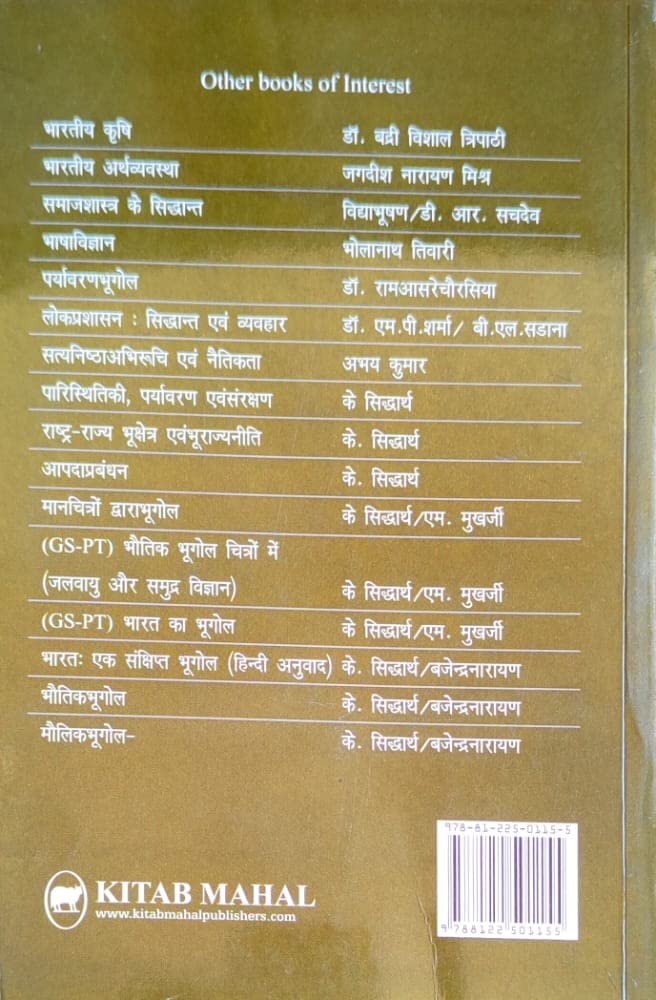 Other books of Interest
भारतीय कृषि डॉ. बद्री विशाल त्रिपाठी
भारतीय अर्थव्यवस्था जगदीश नारायण मिश्र
समाजशास्त्र के सिद्धान्त विद्याभूषण/डी. आर. सचदेव
भाषाविज्ञान भोलानाथ तिवारी
पर्यावरणभूगोल डॉ. रामआसरेचौरसिया
लोकप्रशासन : सिद्धान्त एवं व्यवहार डॉ. एम.पी.शर्मा/ बी.एल.सडाना
सत्यनिष्ठाअभिरूचि एवं नैतिकता अभय कुमार
पारिस्थितिकी, पर्यावरण एवंसंरक्षण के सिद्धार्थ
राष्ट्र-राज्य भूक्षेत्र एवंभूराज्यनीति के. सिद्धार्थ
आपदाप्रबंधन के. सिद्धार्थ
मानचित्रों द्वाराभूगोल के सिद्धार्थ/एम. मुखर्जी
(GS-PT) भौतिक भूगोल चित्रों में
(जलवायु और समुद्र विज्ञान) के सिद्धार्थ/एम. मुखर्जी
(GS-PT) भारत का भूगोल के सिद्धार्थ/एम. मुखर्जी
भारतः एक संक्षिप्त भूगोल (हिन्दी अनुवाद) के. सिद्धार्थ/बजेन्द्रनारायण
भौतिकभूगोल के. सिद्धार्थ/बजेन्द्रनारायण
मौलिकभूगोल- के. सिद्धार्थ/बजेन्द्रनारायण
978-81-225-0115-5
9788122501155
KITAB MAHAL
www.kitabmahalpublishers.com